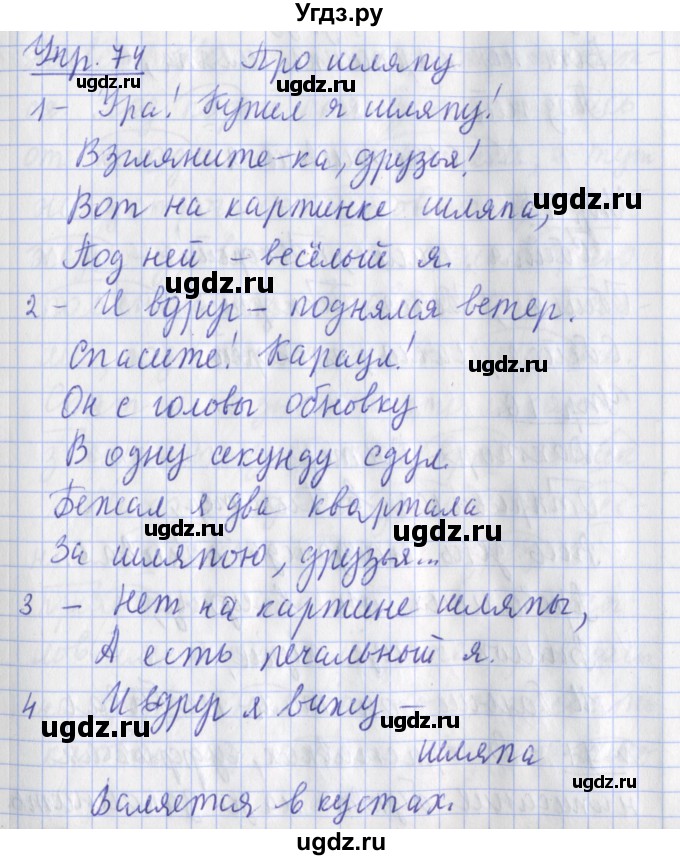 Угдз.ру
Упр. 74 Про шляпу
ugdz.ru ugdz.ru
1 – Ура! Купил я шляпу!
Взгляните-ка, друзья!
ugdz.ru
Вот на картинке шляпа,
Под ней – весёлый я.
ugdz.ru
2 – И вдруг – поднялся ветер.
Спасите! Караул!
ugdz.ru
Он с головы обновку
В одну секунду сдул.
Бежал я два квартала
ugdz.ru ugdz.ru
За шляпою, друзья...
3 – Нет на картине шляпы,
А есть печальный я.
4 И вдруг я вижу –
ugdz.ru ugdz.ru
шляпа
ugdz.ru
Валяется в кустах.
ugdz.ru
ugdz.ru